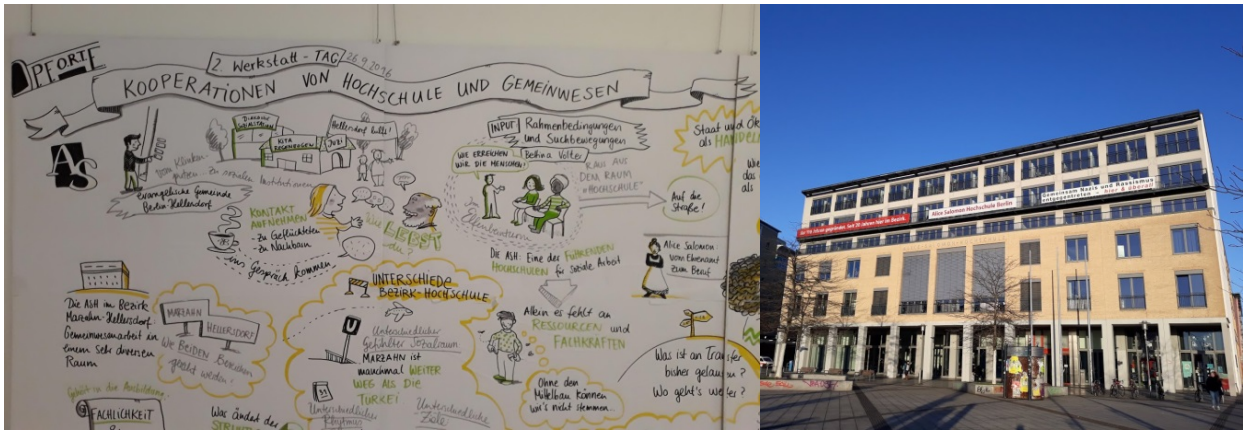 PFORTE
2. Werkstatt - TAG 26.9.2016
KOOPERATIONEN VON HOCHSCHULE UND GEMEINWESEN
AS
evangelische Gemeinde
Berlin-Hellersdorf
Klinken
putzen... zu sozialen Institutionen
KITA
JUZI
Hellersdorf hilft!
KONTAKT
AUFNEHMEN
- Zu Geflüchteten
- Zu Nachbarn
ins Gespräch kommen
Wie
LEBST
du?
INPUT
Rahmenbedingungen
und Suchbewegungen
Bettina Völter
WIE ERREICHEN
WIR DIE MENSCHEN?
RAUS AUS
DEM RAUM
"HOCHSCHULE"
Im Elfenbeinturm
Auf die
Straße!
DIE ASH: Eine der FÜHRENDEN
HOCHSCHULEN für soziale Arbeit
Alice Salomon
vom Ehrenamt
zum Beruf
Staat und
als HANDELN
Die ASH im Bezirk
Marzahn-Hellersdorf
Gemeinwesenarbeit in
einem sehr diversen
Raum
MARZAHN
HELLERSDORF
Wie BEIDEN Bereichen
gerecht werden?
UNTERSCHIEDE
BEZIRK-HOCHSCHULE
U
Unterschiedlicher
Gefühlter Sozialraum
MARZAHN ist
manchmal WEITER
WEG ALS DIE
TÜRKEI
Unterschiedlicher
Rhythmus
Unterschiedliche
Ziele
Allein es fehlt an
RESSOURCEN und
FACHKRÄFTEN
Ohne den
Mittelbau können
wir's nicht stemmen...
Was ist an Transfer
bisher gelaufen?
Wo geht's weiter?
Gehört in die Ausbildung
FACHLICHKEIT
Was ändert der
Alice Salomon Hochschule Berlin
Gemeinsam Nazis und Rassismus
entgegentreten - hier & überall!